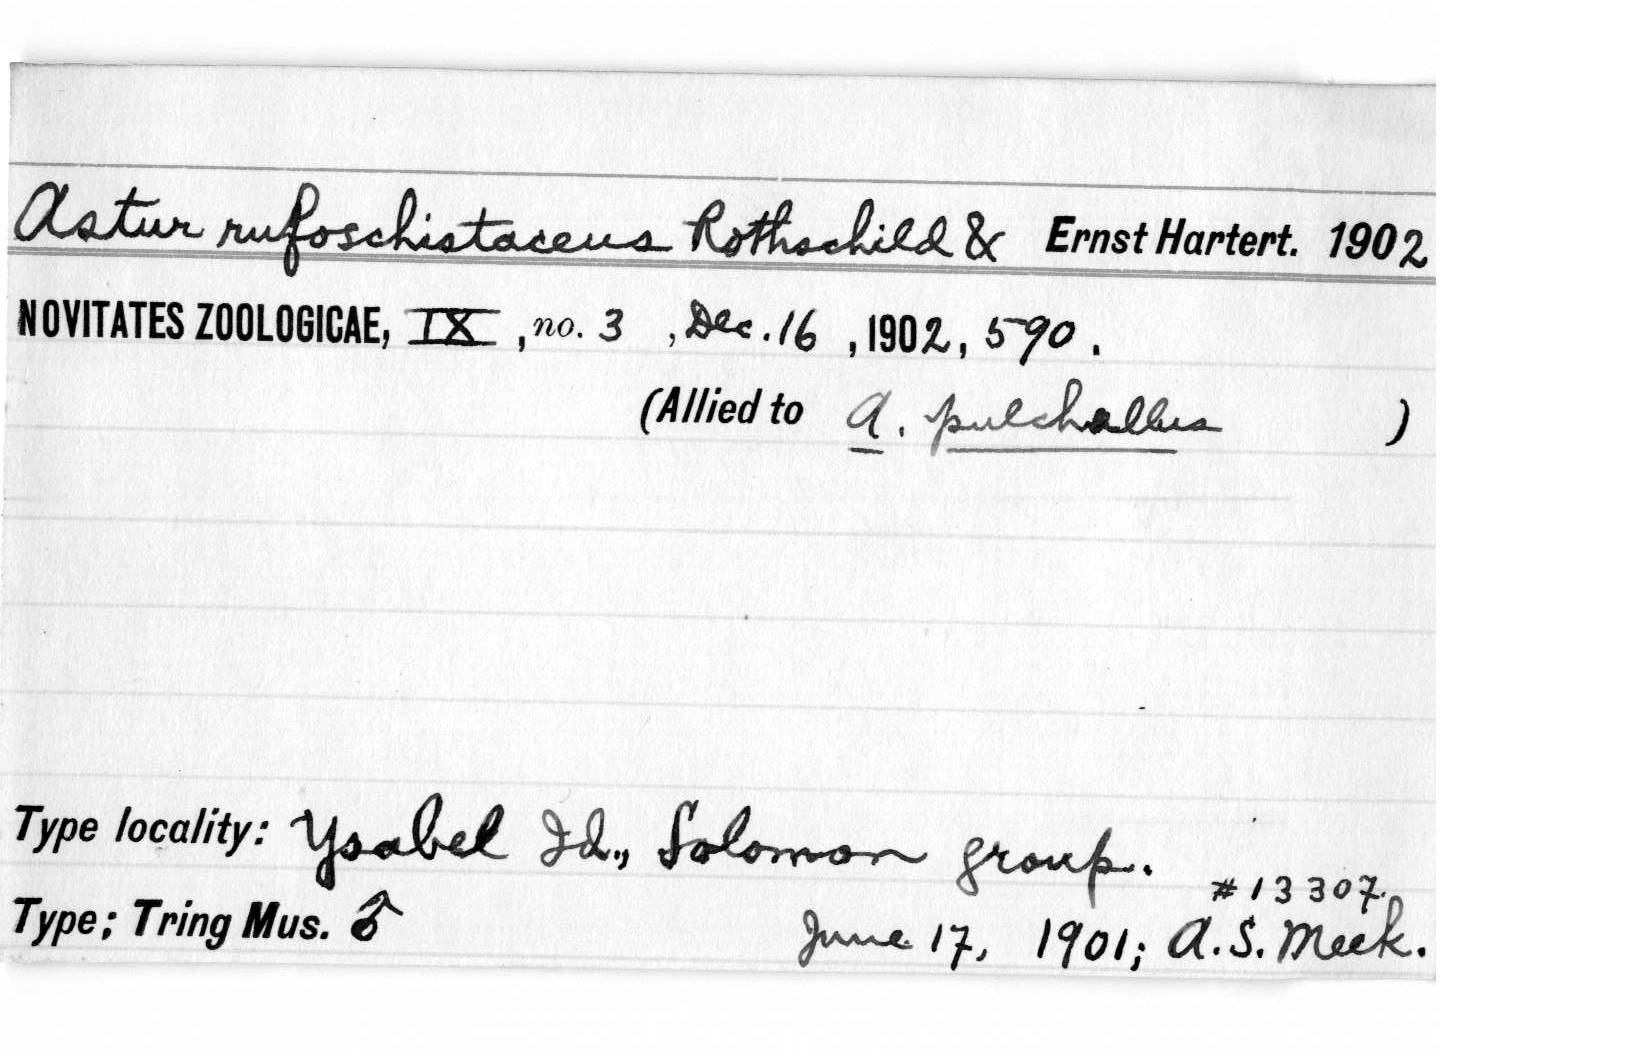 Astur rufoschistaceus Rothschild & Ernst Hartert. 1902
NOVITATES ZOOLOGICAE, IX, no. 3, Dec. 16, 1902, 590.
(Allied to A. pulchellus )
Type locality: Ysabel Id., Solomon group.
#13307.
Type; Tring Mus. ♂ June 17, 1901; A.S. Meek.